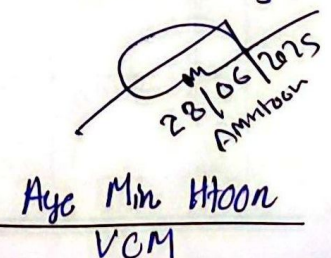 28/06/2025
Amntoon
Aye Min Htoon
VCM